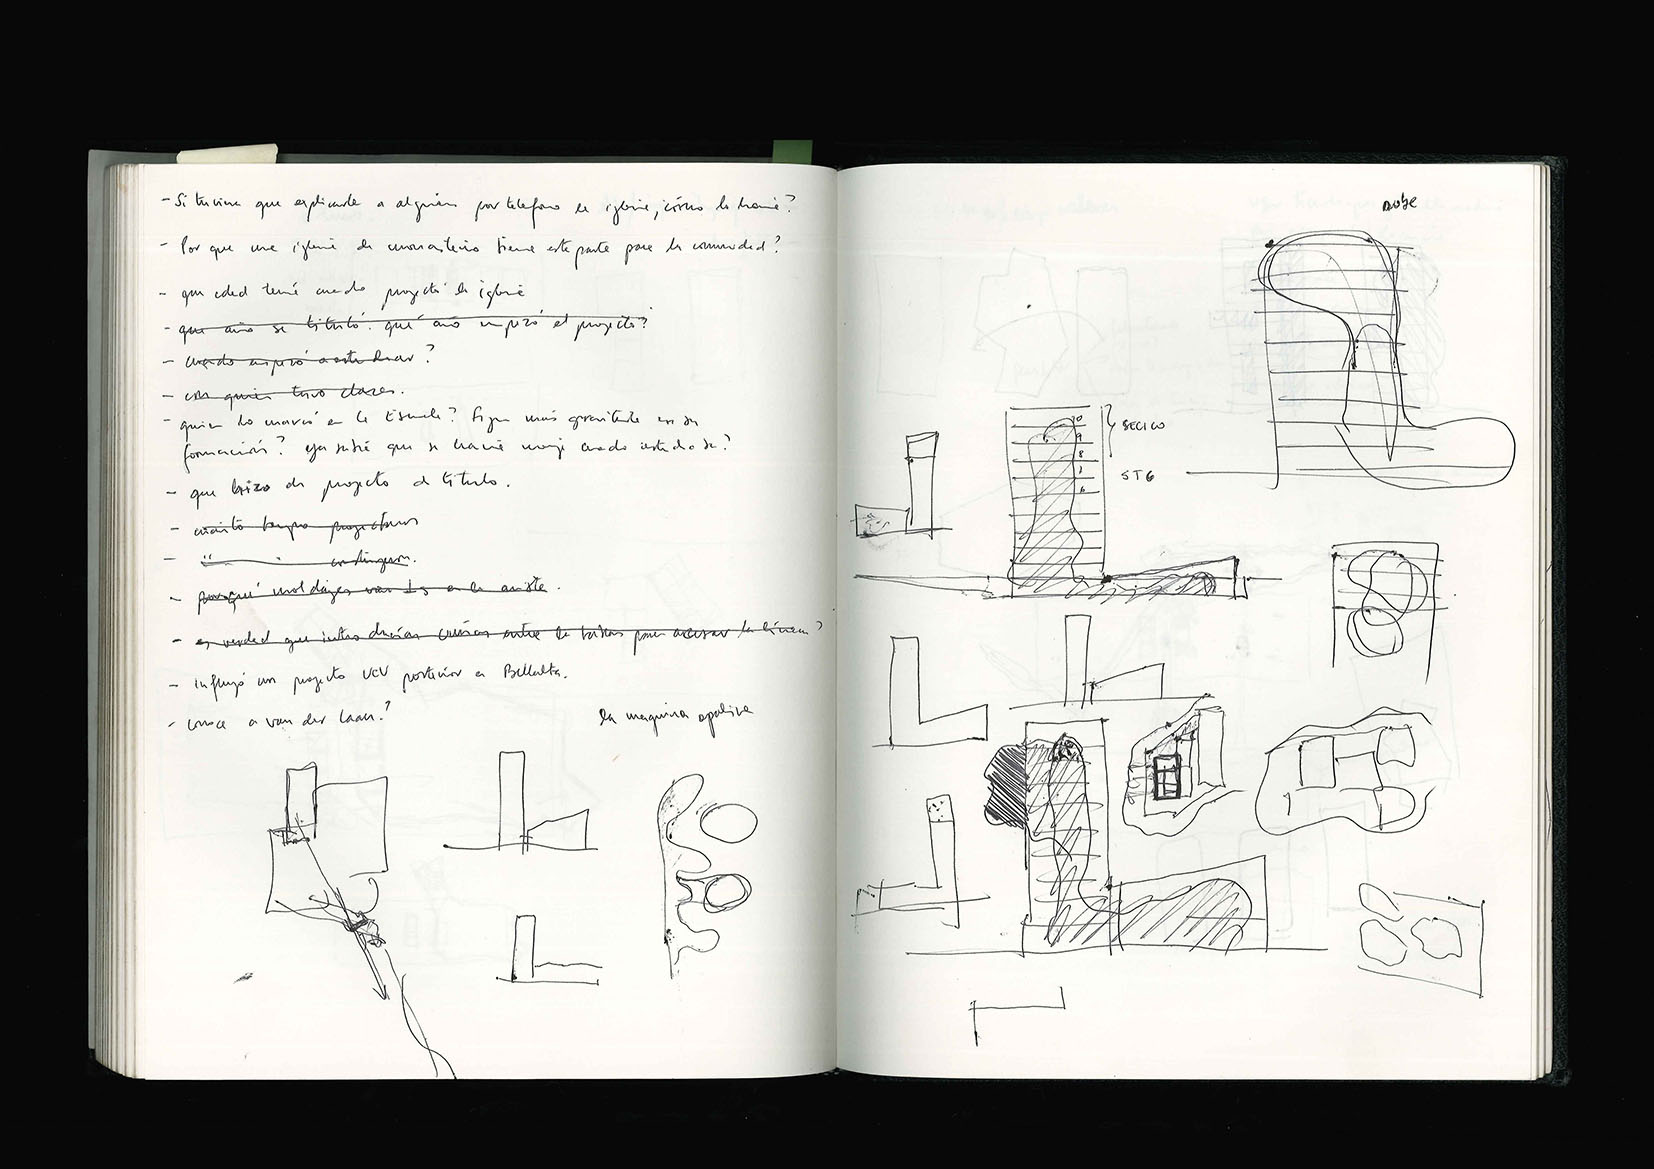 - Si tuviera que explicarle a alguien por telefono la iglesia, ¿cómo lo haría?
- Por que una iglesia de monasterio tiene esta parte para la comunidad?
- que edad tenía cuando proyectó la iglesia
- que año se tituló. qué año empezó el proyecto?
- cuando empezó a estudiar?
- con quien tuvo clases.
- quien lo marcó en la Escuela? Figura más gravitante en su
formación? ya sabía que se haría monje cuando estudiaba?
- que hizo de proyecto de título.
- cuánto tiempo proyectaron
- " "
- porqué moldajes van
- es verdad que introducían cuñas entre las tablas para acusar la línea?
- Influyó un proyecto UCV posterior a Bellalta.
- conoce a van der Laan?
la maquina
NUBE
10
9
8
7
6
BECICO
STG